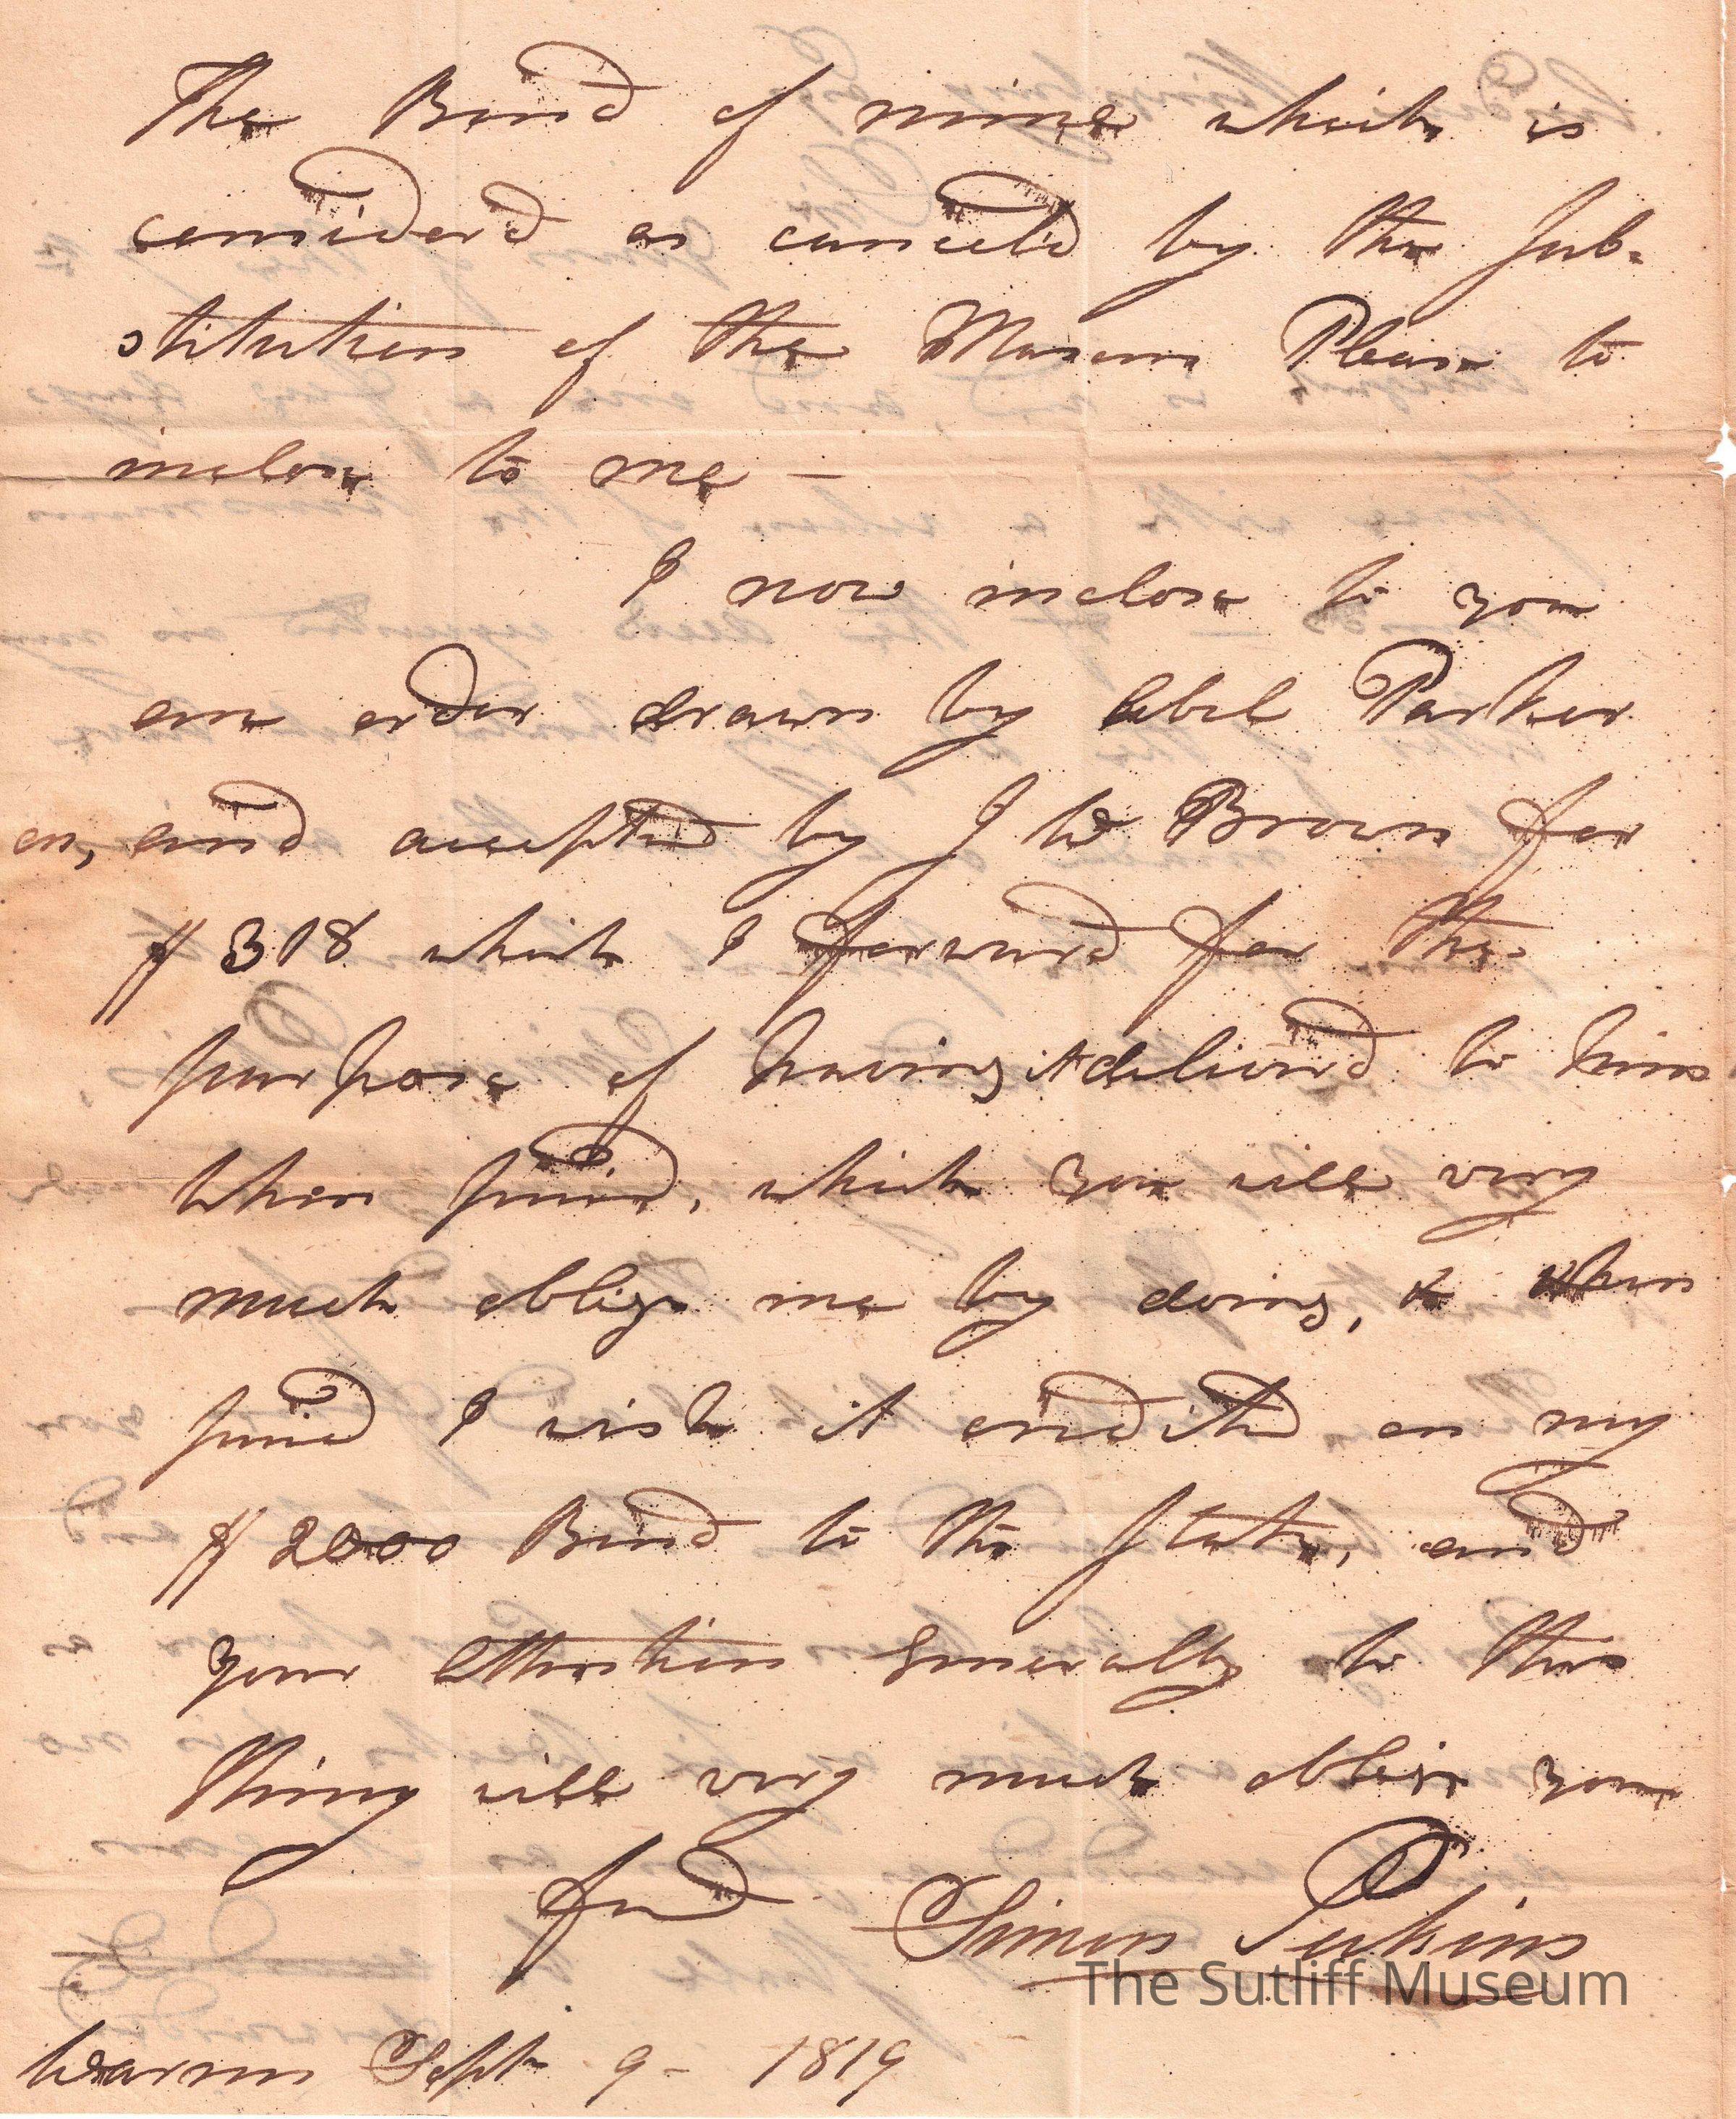 The Bond of mine which is
considerd as canceld by the Sub-
stitution of the Masons Please to
inclose to me —
I now inclose to you
one order drawn by Abel Parker
on, and accepted by J W Brown for
$318 which I forward for the
purpose of having it deliverd to him
when paid, which you will very
much oblige me by doing, & when
paid I wish it credited on my
$2000 Bond to the State, and
your attention generally to this
thing will very much oblige your
Frd Simon Perkins
The Sutliff Museum
Warren Sept 9 - 1819